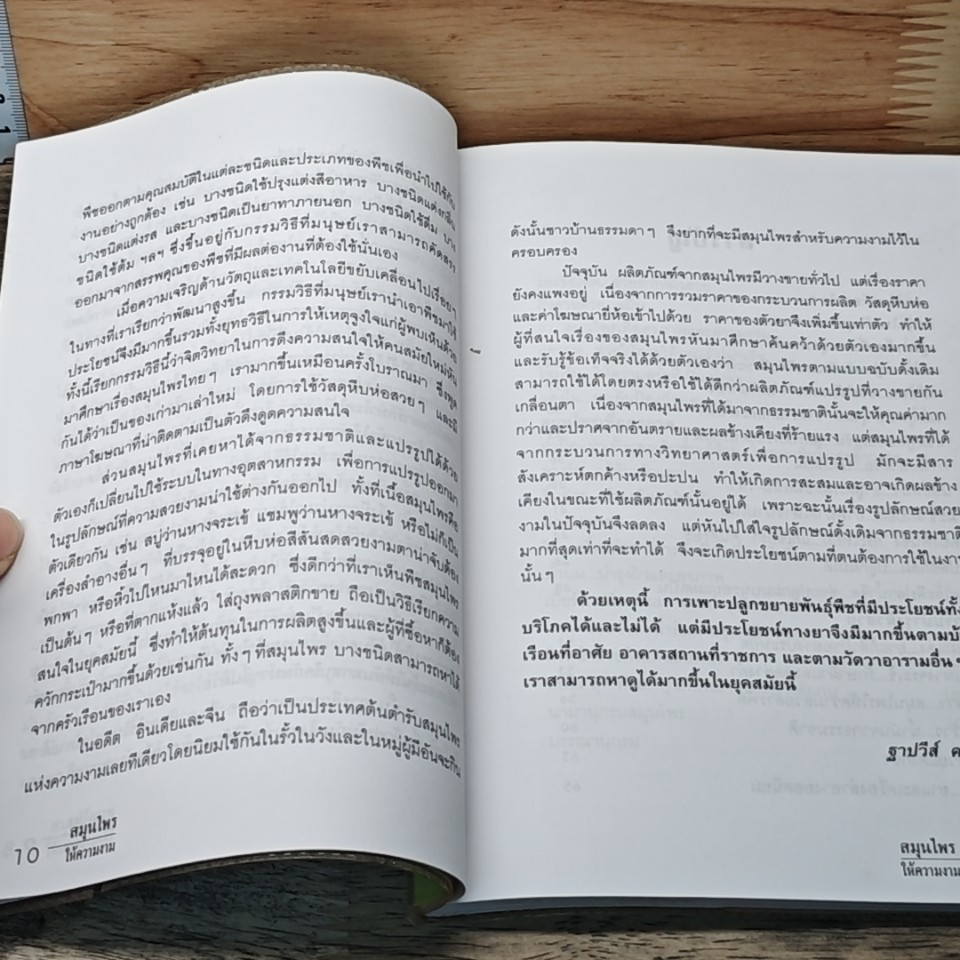 พืชออกตามคุณสมบัติในแต่ละชนิดและประเภทของพืชเพื่อนำไปใช้กับ
งานอย่างถูกต้อง เช่น บางชนิดใช้ปรุงแต่งสีอาหาร บางชนิดแต่งกลิ่น
บางชนิดแต่งรส และบางชนิดเป็นยาทาภายนอก บางชนิดใช้ดื่ม บาง
ชนิดใช้ต้ม ฯลฯ ซึ่งขึ้นอยู่กับกรรมวิธีที่มนุษย์เราสามารถคัดสรร
ออกมาจากสรรพคุณของพืชที่มีผลต่องานที่ต้องใช้นั่นเอง
เมื่อความเจริญด้านวัตถุและเทคโนโลยีขยับเคลื่อนไปเรื่อยๆ
ในทางที่เราเรียกว่าพัฒนาสูงขึ้น กรรมวิธีที่มนุษย์เรานำเอาพืชมาใช้
ประโยชน์จึงมีมากขึ้นรวมทั้งยุทธวิธีในการให้เหตุจูงใจแก่ผู้พบเห็นด้วย
ทั้งนี้เรียกกรรมวิธีนี้ว่าจิตวิทยาในการดึงความสนใจให้คนสมัยใหม่หัน
มาศึกษาเรื่องสมุนไพรไทยๆ เรามากขึ้นเหมือนครั้งโบราณมา ซึ่งพูด
กันได้ว่าเป็นของเก่ามาเล่าใหม่ โดยการใช้วัสดุหีบห่อสวยๆ และมี
ภาษาโฆษณาที่น่าติดตามเป็นตัวดึงดูดความสนใจ
ส่วนสมุนไพรที่เคยหาได้จากธรรมชาติและแปรรูปได้ด้วย
ตัวเองก็เปลี่ยนไปใช้ระบบในทางอุตสาหกรรม เพื่อการแปรรูปออกมา
ในรูปลักษณ์ที่ความสวยงามน่าใช้ต่างกันออกไป ทั้งที่เนื้อสมุนไพรคือ
ตัวเดียวกัน เช่น สบู่ว่านหางจระเข้ แชมพูว่านหางจระเข้ หรือไม่ก็เป็น
เครื่องสำอางอื่นๆ ที่บรรจุอยู่ในหีบห่อสีสันสดสวยงามตาน่าจับต้อง
พกพา หรือหิ้วไปไหนมาไหนได้สะดวก ซึ่งดีกว่าที่เราเห็นพืชสมุนไพร
เป็นต้นๆ หรือที่ตากแห้งแล้ว ใส่ถุงพลาสติกขาย ถือเป็นวิธีเรียกความ
สนใจในยุคสมัยนี้ ซึ่งทำให้ต้นทุนในการผลิตสูงขึ้นและผู้ที่ซื้อหาก็ต้อง
ควักกระเป๋ามากขึ้นด้วยเช่นกัน ทั้งๆ ที่สมุนไพร บางชนิดสามารถหาได้
จากครัวเรือนของเราเอง
ในอดีต อินเดียและจีน ถือว่าเป็นประเทศต้นตำรับสมุนไพร
แห่งความงามเลยทีเดียวโดยนิยมใช้กันในรั้วในวังและในหมู่ผู้มีอันจะกิน
10 สมุนไพร
ให้ความงาม
ดังนั้นชาวบ้านธรรมดาๆ จึงยากที่จะมีสมุนไพรสำหรับความงามไว้ใน
ครอบครอง
ปัจจุบัน ผลิตภัณฑ์จากสมุนไพรมีวางขายทั่วไป แต่เรื่องราคา
ยังคงแพงอยู่ เนื่องจากการรวมราคาของกระบวนการผลิต วัสดุหีบห่อ
และค่าโฆษณายี่ห้อเข้าไปด้วย ราคาของตัวยาจึงเพิ่มขึ้นเท่าตัว ทำให้
ผู้ที่สนใจเรื่องของสมุนไพรหันมาศึกษาค้นคว้าด้วยตัวเองมากขึ้น
และรับรู้ข้อเท็จจริงได้ด้วยตัวเองว่า สมุนไพรตามแบบฉบับดั้งเดิม
สามารถใช้ได้โดยตรงหรือใช้ได้ดีกว่าผลิตภัณฑ์แปรรูปที่วางขายกัน
เกลื่อนตา เนื่องจากสมุนไพรที่ได้มาจากธรรมชาตินั้นจะให้คุณค่ามาก
กว่าและปราศจากอันตรายและผลข้างเคียงที่ร้ายแรง แต่สมุนไพรที่ได้
จากกระบวนการทางวิทยาศาสตร์เพื่อการแปรรูป มักจะมีสาร
สังเคราะห์ตกค้างหรือปะปน ทำให้เกิดการสะสมและอาจเกิดผลข้าง
เคียงในขณะที่ใช้ผลิตภัณฑ์นั้นอยู่ได้ เพราะฉะนั้นเรื่องรูปลักษณ์สวย
งามในปัจจุบันจึงลดลง แต่หันไปใส่ใจรูปลักษณ์ดั้งเดิมจากธรรมชาติ
มากที่สุดเท่าที่จะทำได้ จึงจะเกิดประโยชน์ตามที่ตนต้องการใช้ในงาน
นั้นๆ
ด้วยเหตุนี้ การเพาะปลูกขยายพันธุ์พืชที่มีประโยชน์ทั้ง
บริโภคได้และไม่ได้ แต่มีประโยชน์ทางยาจึงมีมากขึ้นตามบ้าน
เรือนที่อาศัย อาคารสถานที่ราชการ และตามวัดวาอารามอื่นๆ
เราสามารถหาดูได้มากขึ้นในยุคสมัยนี้
ฐาปวีส์
สมุนไพร
ให้ความงาม